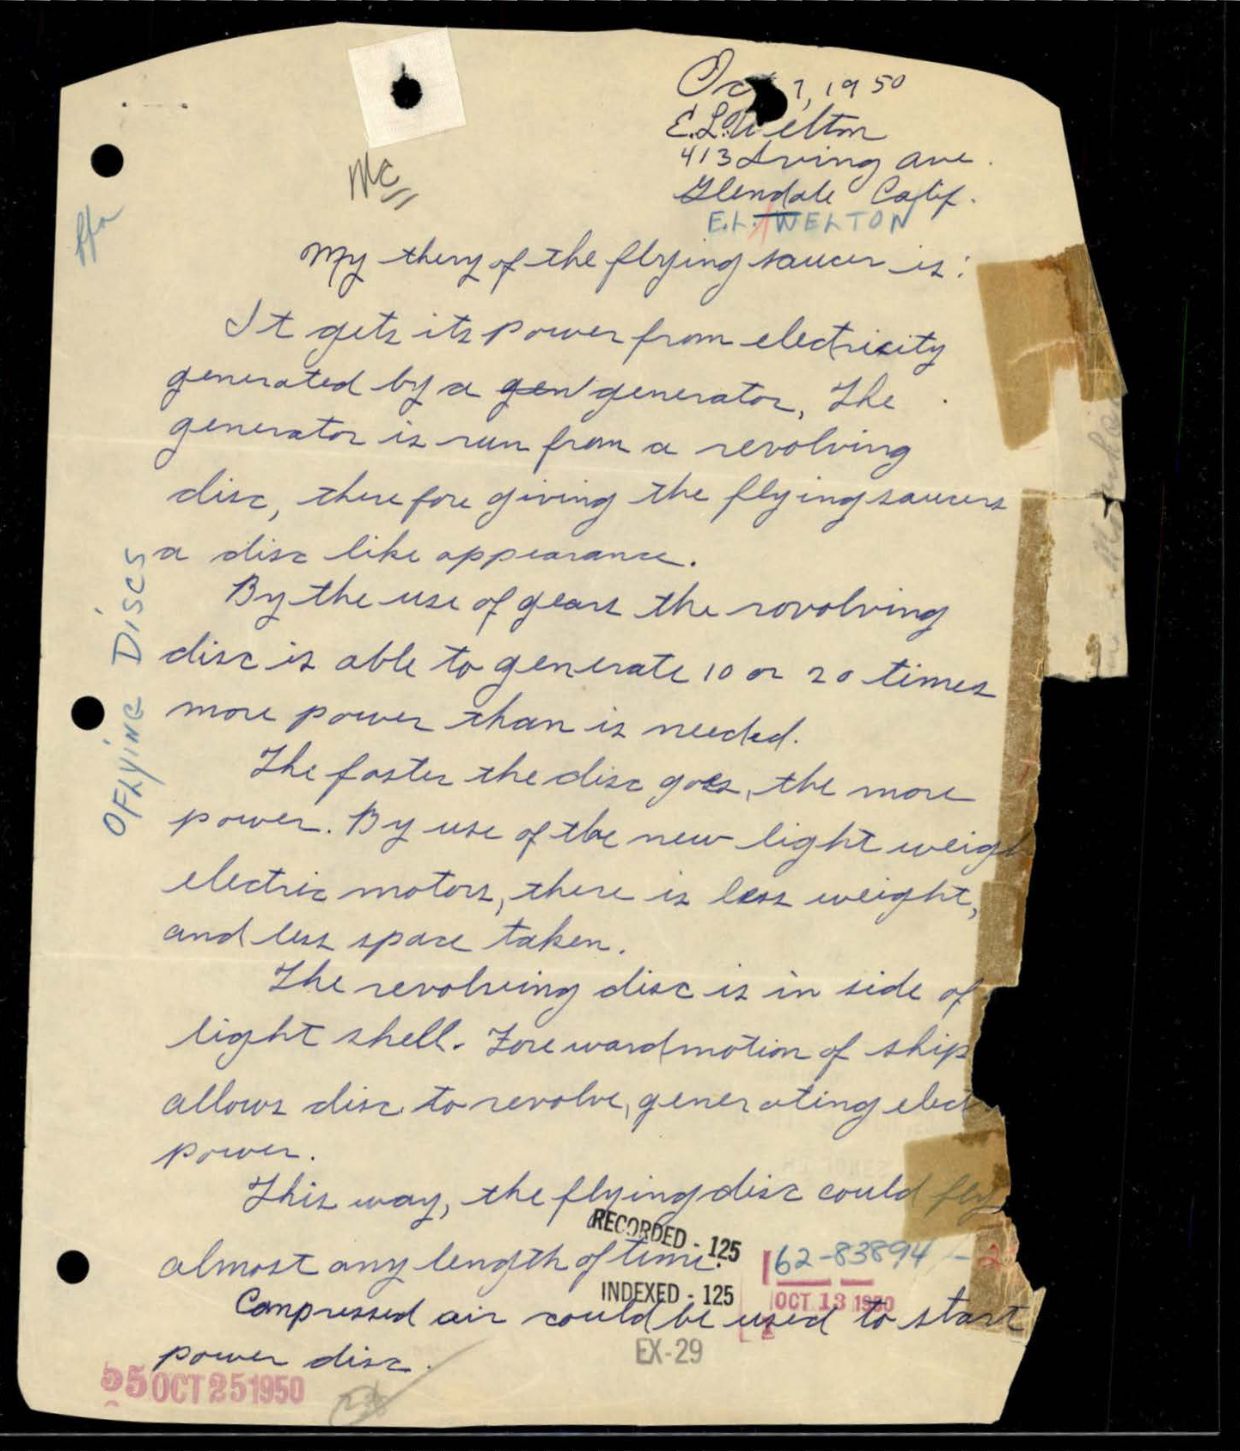 Oct 7, 1950
E.L. Welton
413 Irving ave.
Glendale Calif.
E.L. WELTON
Mc
My thery of the flying saucer is:
It gets its power from electricity
generated by a gen generator, The
generator is run from a revolving
disc, therefore giving the flying saucers
a disc like appearance.
By the use of gears the rovolving
disc is able to generate 10 or 20 times
more power than is needed.
The faster the disc goes, the more
power. By use of the new light weigh
electric motors, there is less weight,
and less space taken.
The revolving disc is in side of
light shell. Foreward motion of ship
allows disc to revolve, generating elect
power.
This way, the flying disc could fly
almost any length of time.
Compressed air could be used to start
power disc.
FLYING DISCS
RECORDED - 125
INDEXED - 125
EX-29
62-83894 - 2
OCT 13 1950
55 OCT 25 1950